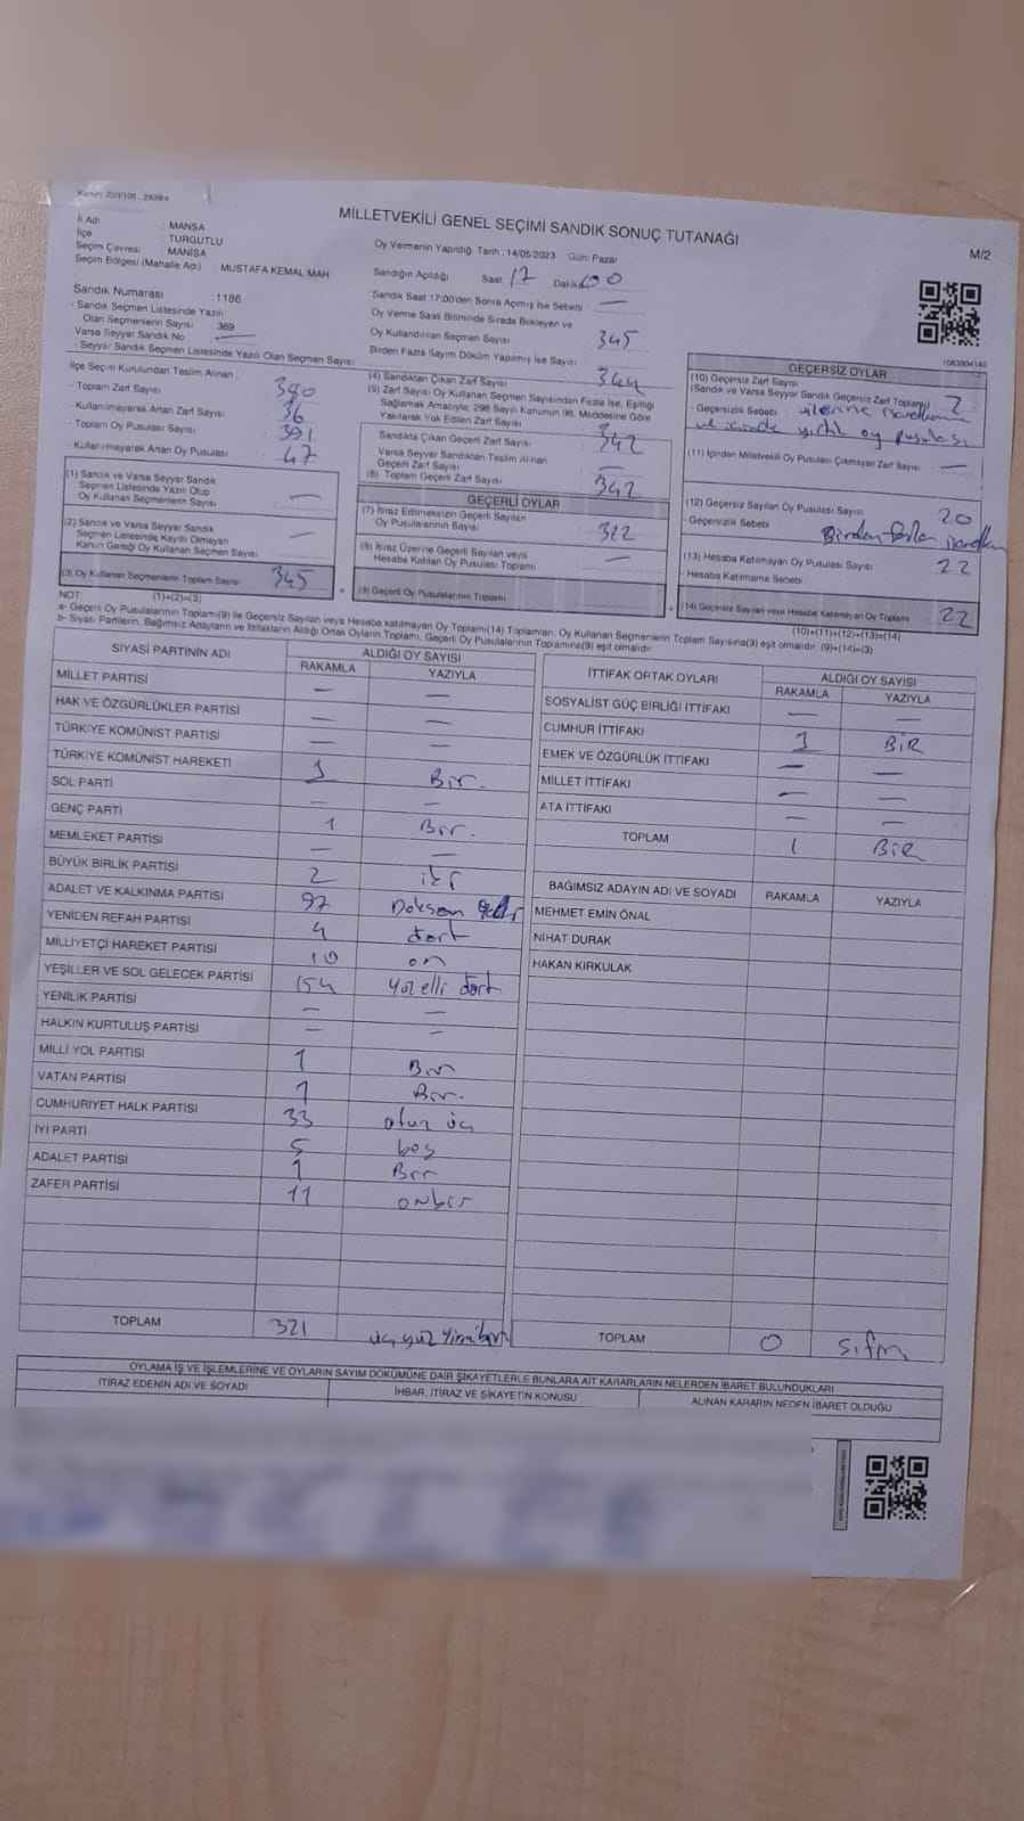 MİLLETVEKİLİ GENEL SEÇİMİ SANDIK SONUÇ TUTANAĞI
M/2
İl Adı : MANİSA
İlçe : TURGUTLU
Seçim Çevresi : MANİSA
Seçim Bölgesi (Mahalle Adı) MUSTAFA KEMAL MAH
Sandık Numarası : 1186
Sandık Seçmen Listesinde Yazılı
Olan Seçmenlerin Sayısı 369
Varsa Seyyar Sandık No
Seyyar Sandık Seçmen Listesinde Yazılı Olan Seçmen Sayısı
Oy Vermenin Yapıldığı Tarih : 14/05/2023 Gün: Pazar
Sandığın Açıldığı Saat 17 Dakika 00
Sandık Saat 17:00'den Sonra Açılmış İse Sebebi —
Oy Verme Saati Bitiminde Sırada Bekleyen ve
Oy Kullandırılan Seçmen Sayısı 345
Birden Fazla Sayım Döküm Yapılmış İse Sayısı
İlçe Seçim Kurulundan Teslim Alınan
- Toplam Zarf Sayısı 380
- Kullanılmayarak Artan Zarf Sayısı 36
- Toplam Oy Pusulası Sayısı 391
Kullanılmayarak Artan Oy Pusulası 47
(1) Sandık ve Varsa Seyyar Sandık
Seçmen Listesinde Yazılı Olup
Oy Kullanan Seçmenlerin Sayısı —
(2) Sandık ve Varsa Seyyar Sandık
Seçmen Listesinde Kayıtlı Olmayan
Kanun Gereği Oy Kullanan Seçmen Sayısı —
(3) Oy Kullanan Seçmenlerin Toplam Sayısı 345
(1)+(2)=(3)
(4) Sandıktan Çıkan Zarf Sayısı 344
(5) Zarf Sayısı Oy Kullanan Seçmen Sayısından Fazla İse, Eşitliği
Sağlamak Amacıyla, 298 Sayılı Kanunun 98. Maddesine Göre
Yakılarak Yok Edilen Zarf Sayısı
Sandıkta Çıkan Geçerli Zarf Sayısı 342
Varsa Seyyar Sandıktan Teslim Alınan
Geçerli Zarf Sayısı —
(6) Toplam Geçerli Zarf Sayısı 342
GEÇERLİ OYLAR
(7) İtiraz Edilmeksizin Geçerli Sayılan
Oy Pusulalarının Sayısı 322
(8) İtiraz Üzerine Geçerli Sayılan veya
Hesaba Katılan Oy Pusulası Toplamı —
(9) Geçerli Oy Pusulalarının Toplamı
GEÇERSİZ OYLAR
(10) Geçersiz Zarf Sayısı
(Sandık ve Varsa Seyyar Sandık Geçersiz Zarf Toplamı) 2
- Geçersizlik Sebebi
yırtık oy pusulası
(11) İçinden Milletvekili Oy Pusulası Çıkmayan Zarf Sayısı —
(12) Geçersiz Sayılan Oy Pusulası Sayısı 20
- Geçersizlik Sebebi Birden fazla
(13) Hesaba Katılmayan Oy Pusulası Sayısı 22
- Hesaba Katılmama Sebebi
(14) Geçersiz Sayılan veya Hesaba Katılmayan Oy Toplamı 22
(10)+(11)+(12)+(13)=(14)
NOT:
a- Geçerli Oy Pusulalarının Toplamı(9) ile Geçersiz Sayılan veya Hesaba katılmayan Oy Toplamı(14) Toplamları, Oy Kullanan Seçmenlerin Toplam Sayısına(3) eşit olmalıdır. (9)+(14)=(3)
b- Siyasi Partilerin, Bağımsız Adayların ve İttifakların Aldığı Ortak Oyların Toplamı, Geçerli Oy Pusulalarının Toplamına(9) eşit olmalıdır.
SİYASİ PARTİNİN ADI ALDIĞI OY SAYISI
RAKAMLA YAZIYLA
MİLLET PARTİSİ — —
HAK VE ÖZGÜRLÜKLER PARTİSİ — —
TÜRKİYE KOMÜNİST PARTİSİ — —
TÜRKİYE KOMÜNİST HAREKETİ 1 Bir.
SOL PARTİ — —
GENÇ PARTİ 1 Bir.
MEMLEKET PARTİSİ — —
BÜYÜK BİRLİK PARTİSİ 2 iki
ADALET VE KALKINMA PARTİSİ 97 Doksan yedi
YENİDEN REFAH PARTİSİ 4 dört
MİLLİYETÇİ HAREKET PARTİSİ 10 on
YEŞİLLER VE SOL GELECEK PARTİSİ 154 yüz elli dört
YENİLİK PARTİSİ — —
HALKIN KURTULUŞ PARTİSİ — —
MİLLİ YOL PARTİSİ 1 Bir
VATAN PARTİSİ 1 Bir.
CUMHURİYET HALK PARTİSİ 33 otuz üç
İYİ PARTİ 5 beş
ADALET PARTİSİ 1 Bir
ZAFER PARTİSİ 11 onbir
TOPLAM 321 üç yüz yirmibir
İTTİFAK ORTAK OYLARI ALDIĞI OY SAYISI
RAKAMLA YAZIYLA
SOSYALİST GÜÇ BİRLİĞİ İTTİFAKI — —
CUMHUR İTTİFAKI 1 BİR
EMEK VE ÖZGÜRLÜK İTTİFAKI — —
MİLLET İTTİFAKI — —
ATA İTTİFAKI — —
TOPLAM 1 BİR
BAĞIMSIZ ADAYIN ADI VE SOYADI RAKAMLA YAZIYLA
MEHMET EMİN ÖNAL
NİHAT DURAK
HAKAN KIRKULAK
TOPLAM 0 sıfır
OYLAMA İŞ VE İŞLEMLERİNE VE OYLARIN SAYIM DÖKÜMÜNE DAİR ŞİKAYETLERLE BUNLARA AİT KARARLARIN NELERDEN İBARET BULUNDUKLARI
İTİRAZ EDENİN ADI VE SOYADI İHBAR, İTİRAZ VE ŞİKAYETİN KONUSU ALINAN KARARIN NEDEN İBARET OLDUĞU